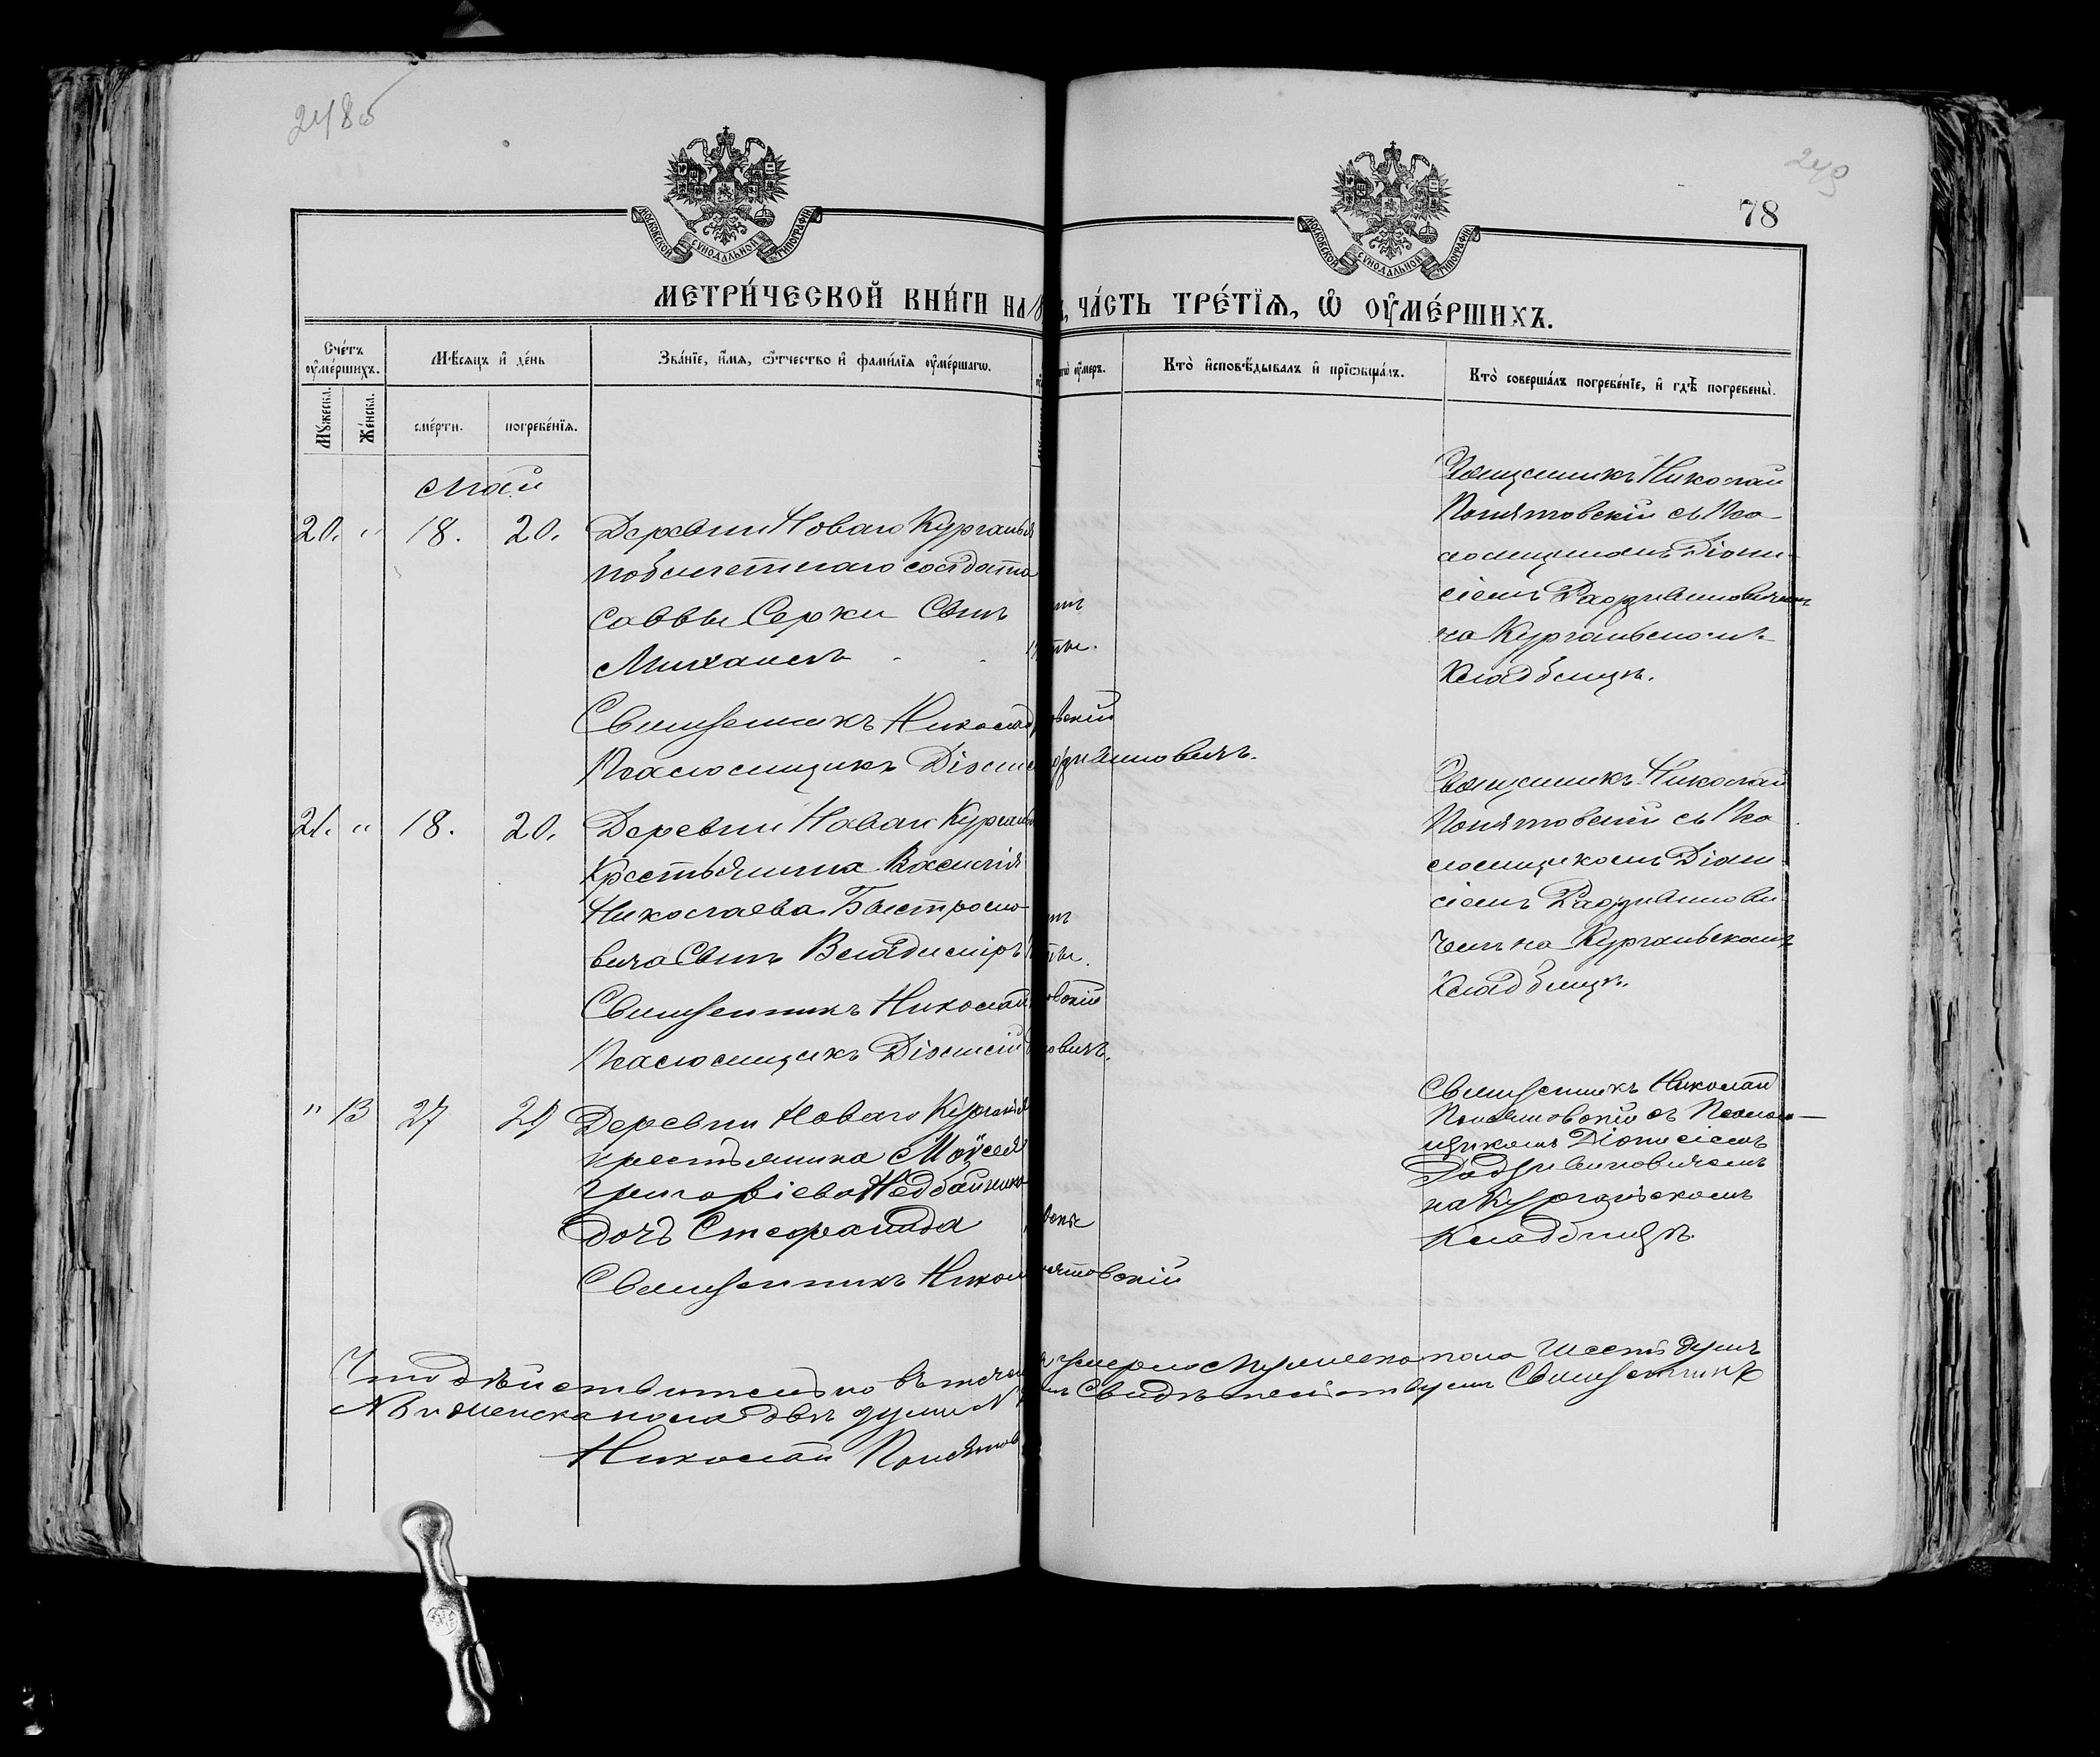 248об
249
78
МОСКОВСКОЙ СѴНОДАЛЬНОЙ ТИПОГРАФІИ
МОСКОВСКОЙ СѴНОДАЛЬНОЙ ТИПОГРАФІИ
МЕТРИ́ЧЕСКОЙ КНИ́ГИ НА 18 ЧА́СТЬ ТРЕ́ТЇѦ, Ѡ ОУ҆МЕ́РШИХЪ.
Сче́тъ оу҆ме́ршихъ.
Мѣ́сѧцъ и҆ де́нь
Зва́нїе, и҆́мѧ, ѻ҆́тчество и҆ фами́лїѧ оу҆ме́ршагѡ.
оу҆́меръ.
Кто̀ и҆сповѣ́дывалъ и҆ прїѡбща́лъ.
Кто̀ соверша́лъ погребе́нїе, и҆ гдѣ̀ погребены̀.
Му́жеска.
Же́нска.
сме́рти.
погребе́нїѧ.
Май
20. " 18. 20.
Деревни Новаго Курганья
безсрочнаго солдата
Саввы Серки Сынъ
Михаилъ
Священникъ Николай
Понятовскій съ Пса-
ломщикомъ Діони-
сіемъ Радзивиновичемъ
на Курганьском
Кладбищѣ.
Священникъ Николай овскій
Псаломщикъ Діониси дзивиновичъ.
21. " 18. 20.
Деревни Новаго Курганья
Крестьянина Василія
Николаева Быстромо-
вича Сынъ Владиміръ
Священникъ Николай
Понятовскій съ Пса
ломщикомъ Діони-
сіемъ Радзивинови
чемъ на Курганьскомъ
Кладбищѣ.
Священникъ Николай овскій
Псаломщикъ Діонисій новичъ.
" 13 27 29
Деревни Новаго Курганья
крестьянина Моѵсея
Григоріева Недбайника
дочь Стефанида
Священникъ Николай
Понятовскій съ Псалом-
щикомъ Діонисіемъ
Радзивиновичемъ
на Курганьскомъ
Кладбищѣ.
Священникъ Никола нятовскій
Что дѣйствительно въ мѣсяцѣ умерло Мужеска пола Шесть душъ
№6 и женска пола двѣ души №2 Свидѣтельствуемъ Священникъ
Николай Понятов